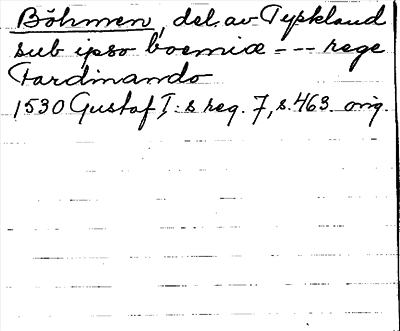 Böhmen, del av Tyskland
sub ipso boemiæ --- rege
Fardinando
1530 Gustaf I:s reg. 7, s. 463. orig.